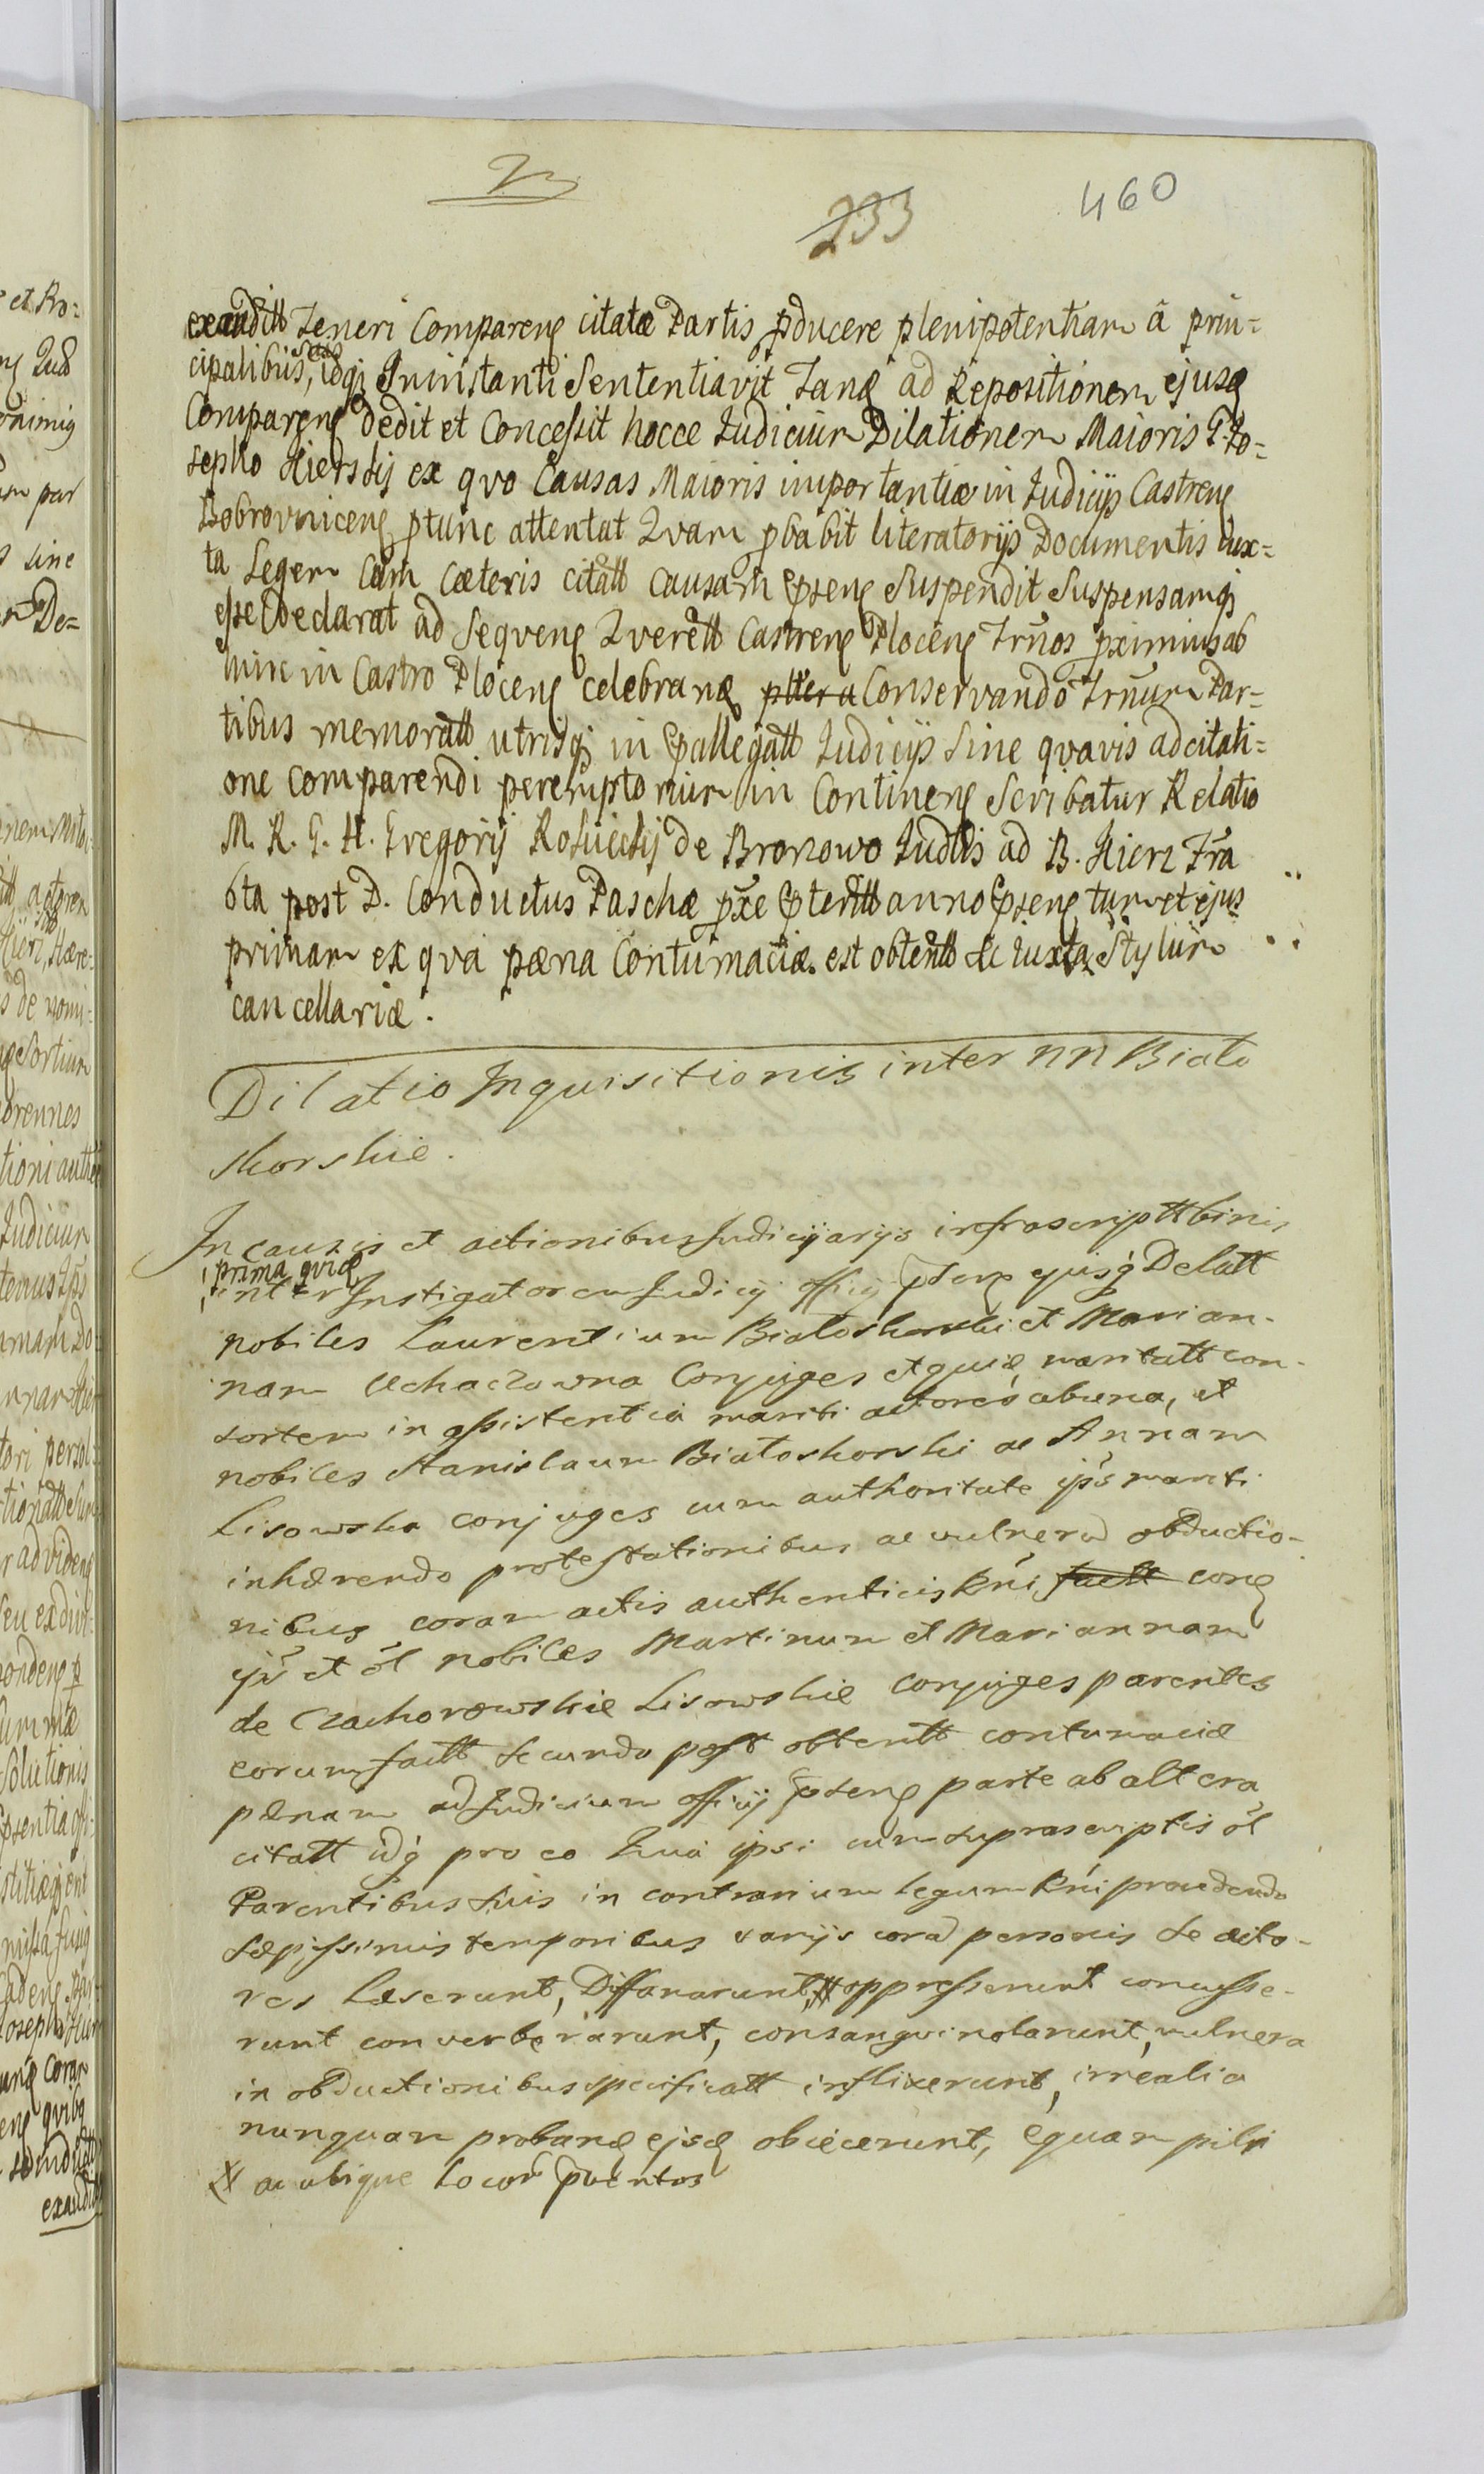 460
233
exauditt Teneri Comparens citatæ Partis pducere plenipotentiam â prin=
cipalibus, idqȝ Ininstanti Sententiavit Tandȩ ad Repositionem ejusdȩ
Comparens dedit et Concessit hocce Judicium Dilationem Maioris G. Jo=
sepho Hierskij ex qvo Causas Maioris importantiæ in Judicijs Castrens
Bobrovnicens ptunc attentat Qvam pbabit literatorijs Documentis Jux=
ta Legem Cum Cæteris citatt Causam pnsens Suspendit Suspensamqȝ
esse Declarat ad Seqvens Qverett Castrens Plocens Trños pximius ab
hinc in Castro Plocens celebrandȩ Conservando Trñum Par=
tibus memoratt utrisqȝ in pallegatt Judicijs Sine qvavis adcitati=
one Comparendi peremptorium in Continens Scribatur Relatio
M. R. G. H. Gregorij Kosiickij de Bronowo Judttis ad B. Hierz Fra
6ta post D. Conductus Paschæ pxe pteritt anno pnsens tum et ejus
primam ex qva pæna Contumaciæ est obtentt Sc Juxta Stylum
cancellariæ.
Dilatio Inquisitionis inter NN Biało
skorskie.
In causis et actionibus Judicijarijs infrascriptt binis
prima qvidȩ
inter Instigatorem Judicij officij pnsens ejusq Delatt
nobiles Laurentium Białoskorski et Marian-
nam Uchaczowna Conjuges et quidȩ maritatt con-
sortem in assistentia mariti actores ab una, et
nobiles Stanislaum Białoskorski ac Annam
Lisowska conjuges cum authoritate ips mariti
inhærendo protestationibus ac vulnerũ obductio-
nibus coram actis authenticis Rni factt cons
ijs et ol nobiles Martinum et Mariannam
de Czachorowskie Lisowskie conjuges parentes
eorum factt secundo post obtentt contumaciæ
pænam ad Judicium officij pnsens parte ab altera
citatt idq pro eo Quia ipsi cum suprascriptis ol
Parentibus suis in contrarium legum Rni procedendo
sæpissimis temporibus varijs corã personis se acto-
res Læserunt, Diffamarunt, # oppresserunt concusse-
runt converberarunt, consangvinolarunt, vulnera
in obductionibus specificatt inflixerunt, irrealia
nunquam probandȩ ejsdȩ obiecerunt, equam pili
# ac ubique locorũ pventos